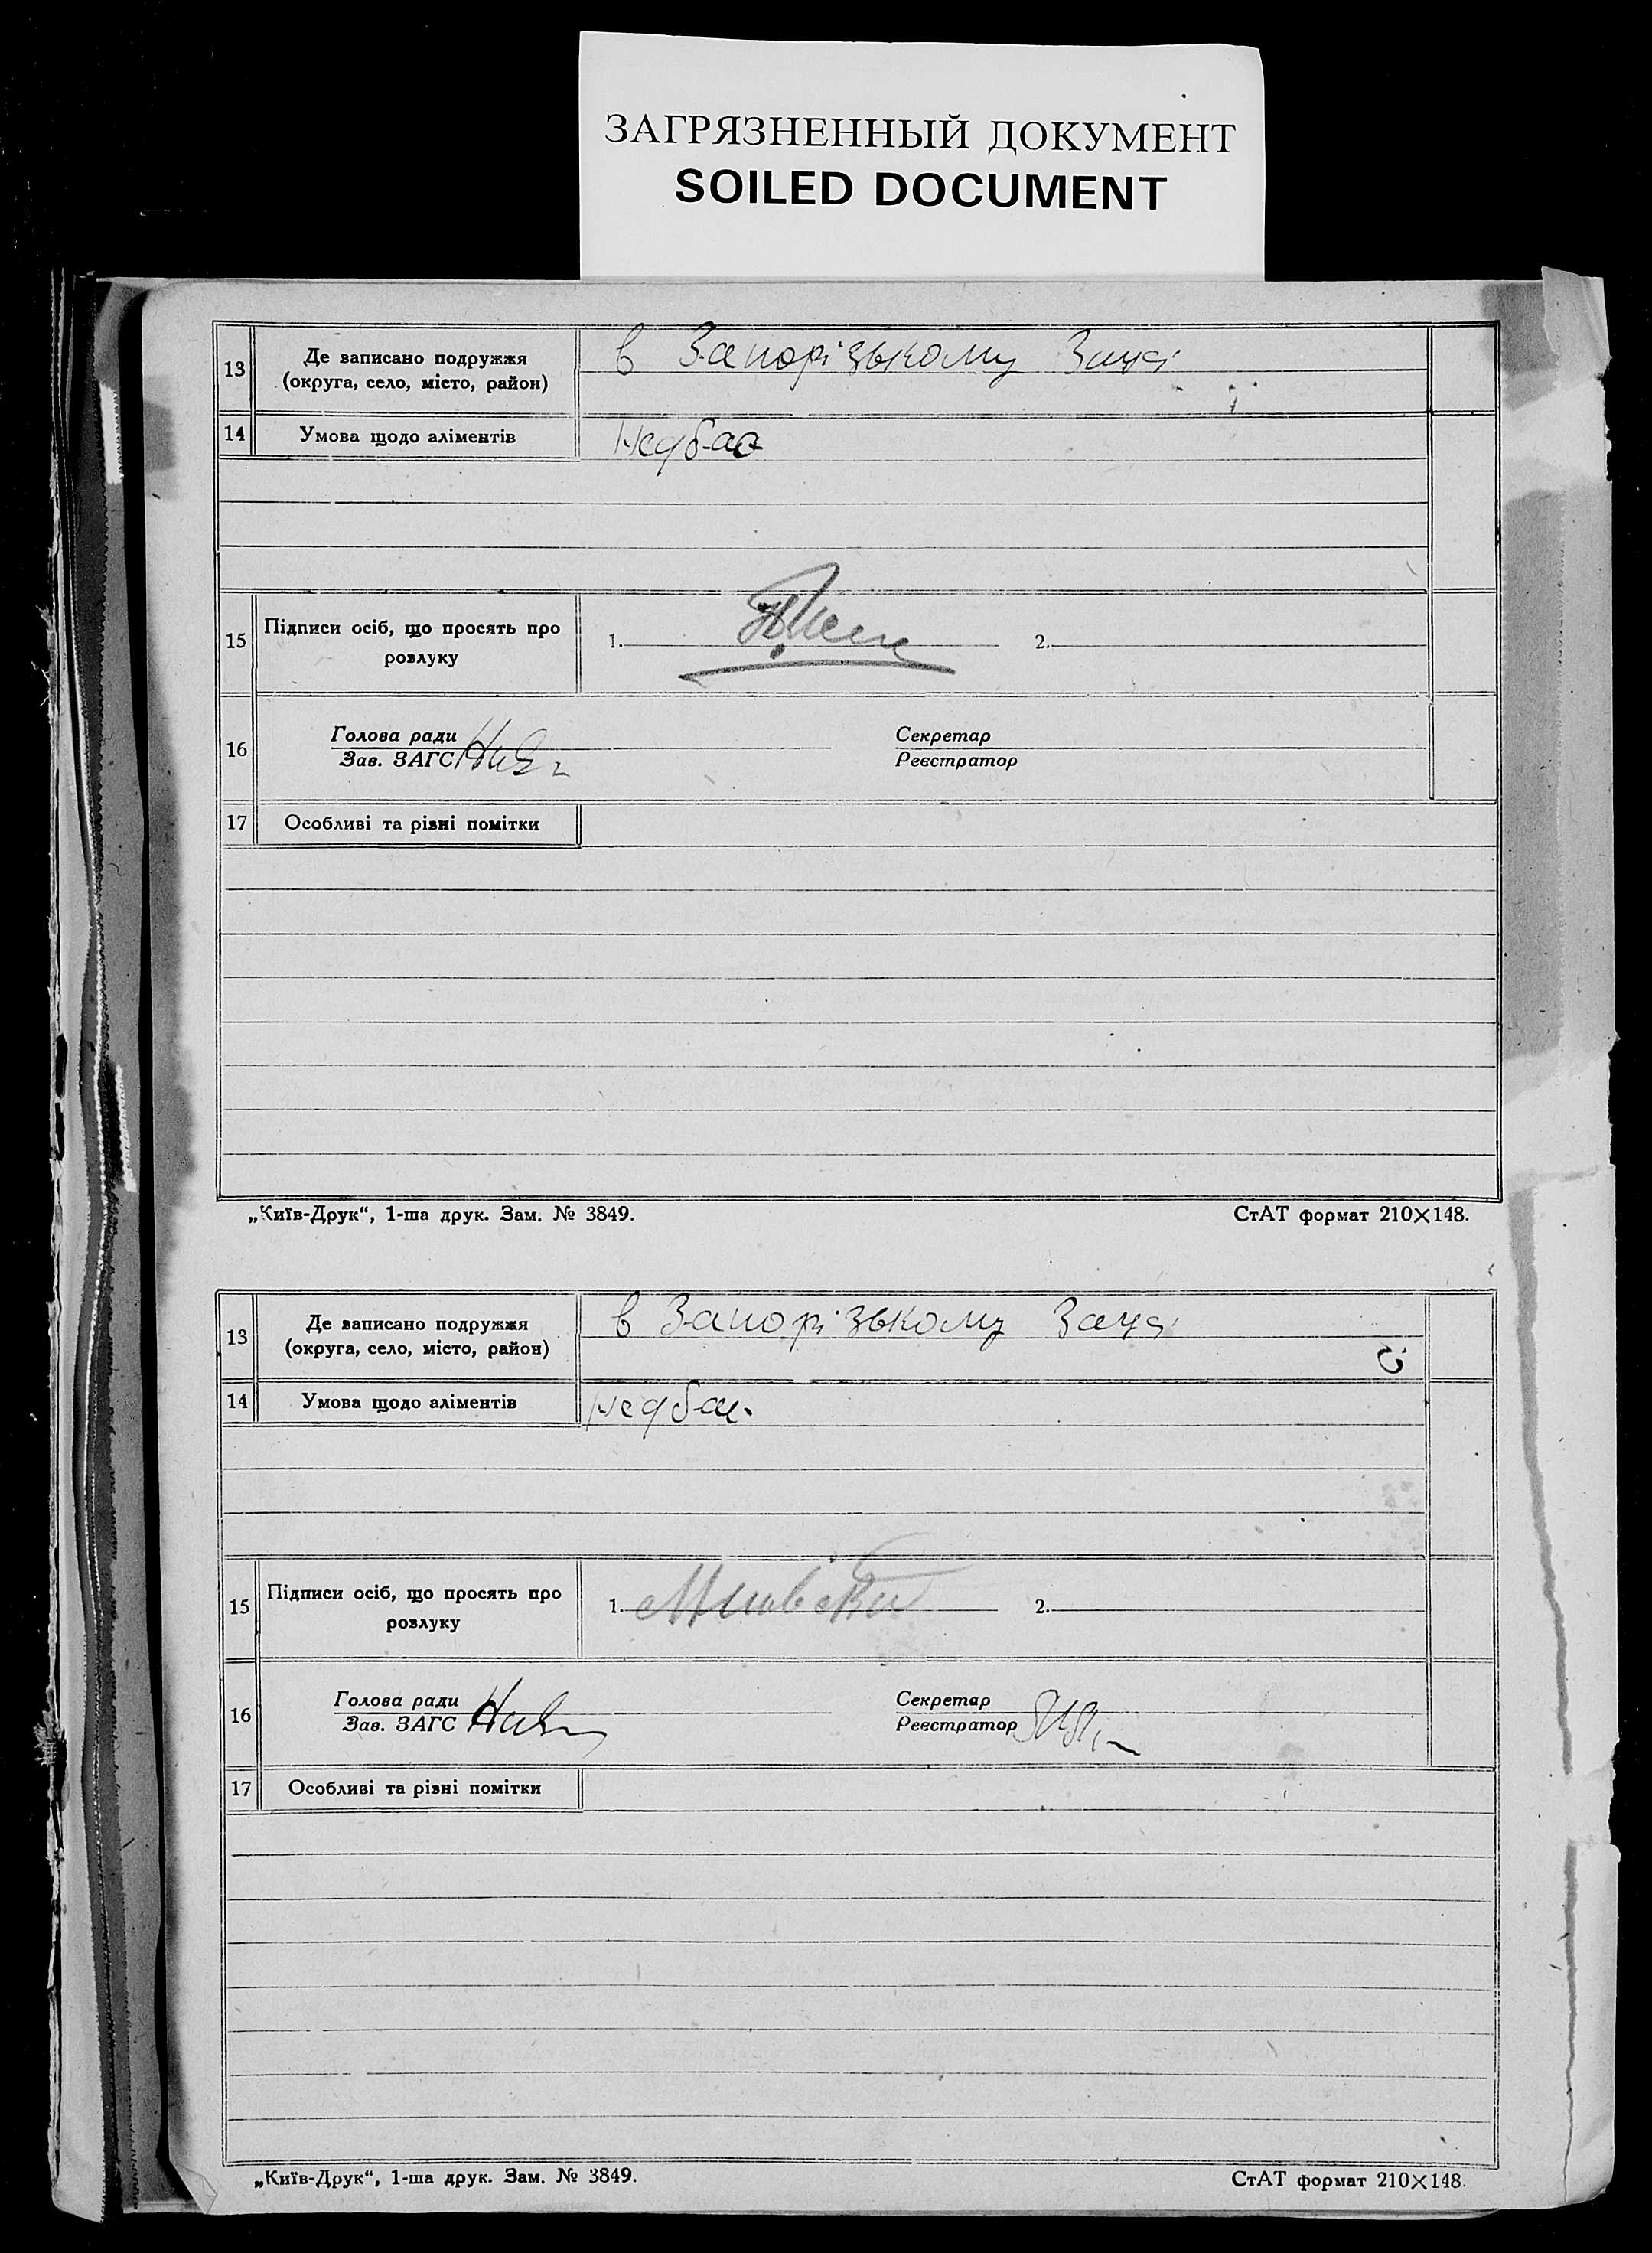 ЗАГРЯЗНЕННЫЙ ДОКУМЕНТ
SOILED DOCUMENT
13 Де записано подружжя (округа, село, місто, район) в Запорізькому Загсі
14 Умова щодо аліментів
15 Підписи осіб, що просять про розлуку 1. 2.
16 Голова ради Секретар
Зав. ЗАГС Реєстратор
17 Особливі та різні помітки
„Київ-Друк“, 1-ша друк. Зам. № 3849. СтАТ формат 210×148.
13 Де записано подружжя (округа, село, місто, район) в Запорізькому Загсі
14 Умова щодо аліментів
15 Підписи осіб, що просять про розлуку 1. 2.
16 Голова ради Секретар
Зав. ЗАГС Реєстратор
17 Особливі та різні помітки
„Київ-Друк“, 1-ша друк. Зам. № 3849. СтАТ формат 210×148.